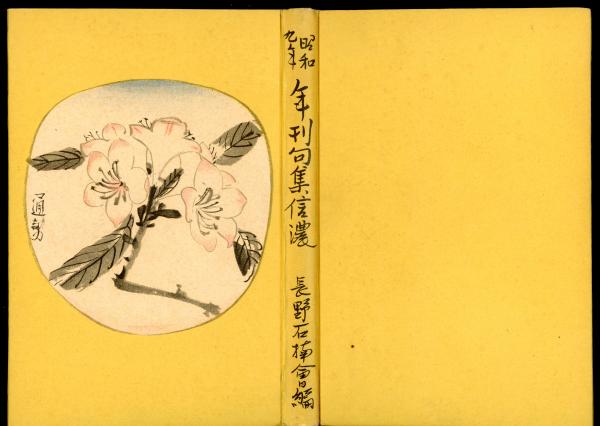 昭和
九年
年刊句集信濃
長野石楠會編